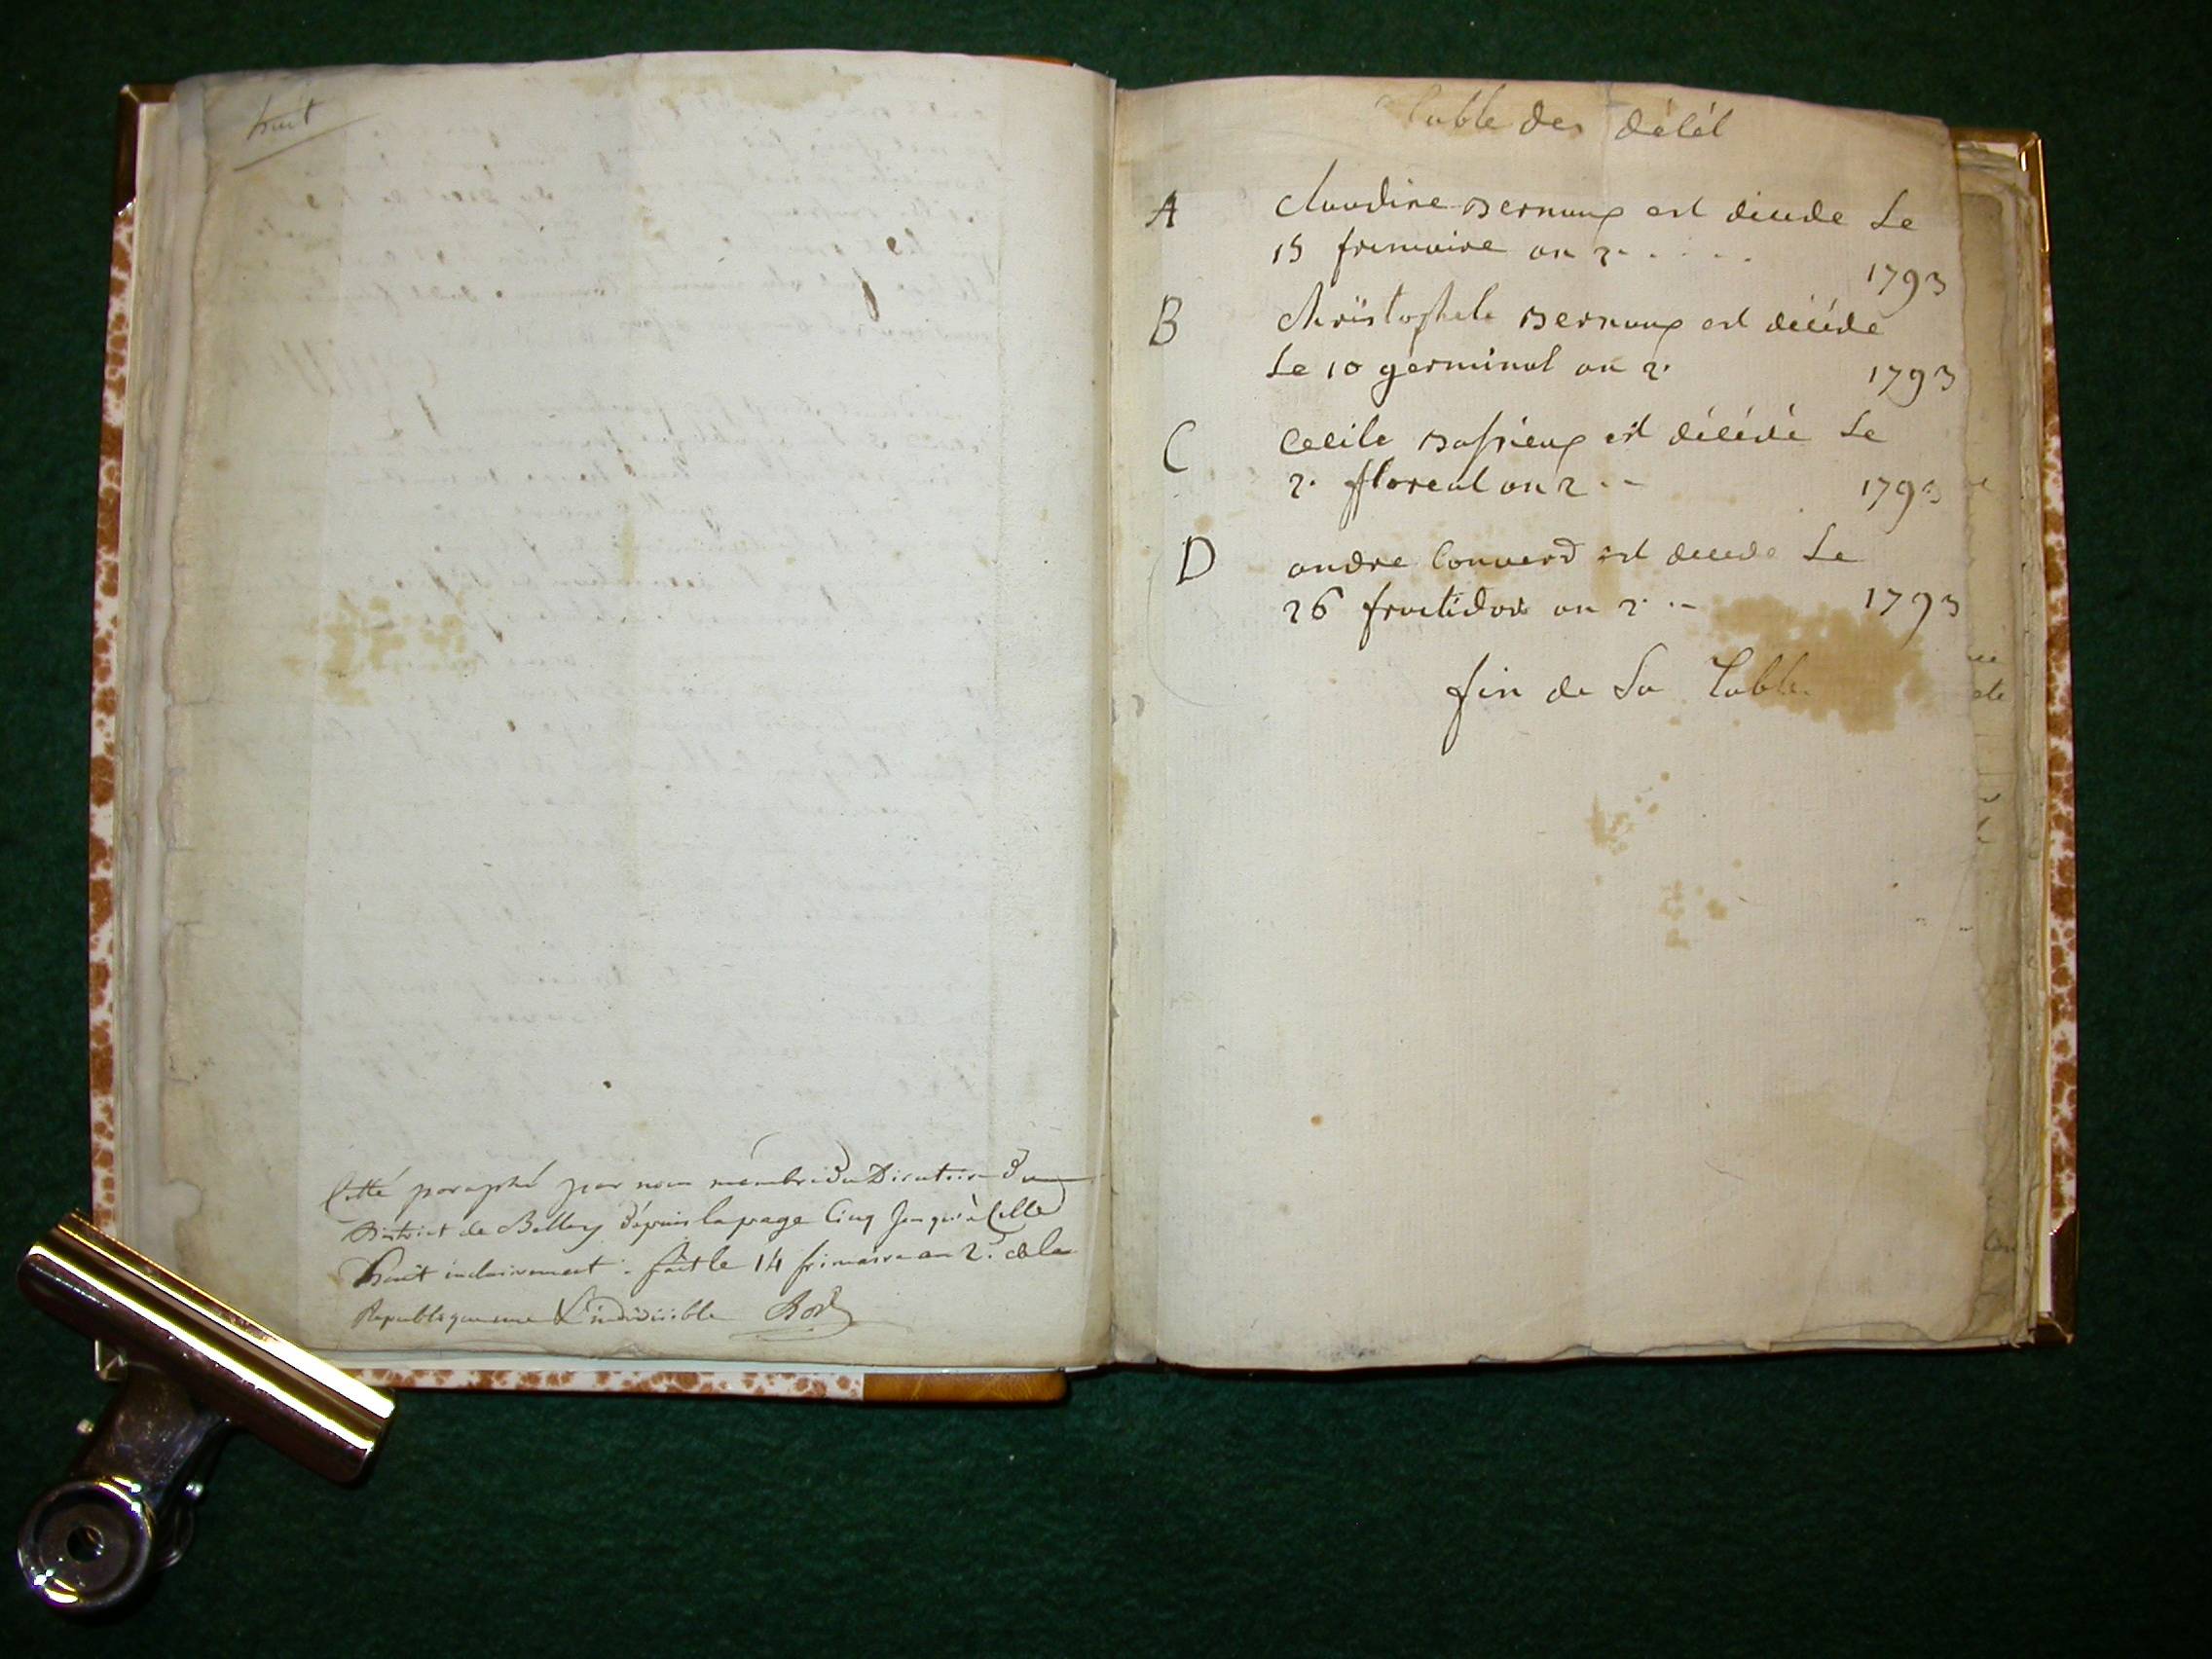 huit
Cotté paraphé par nous membre du Directoire du
District de Belley dépuis la page Cinq Jusqu'à Celle
huit inclusivement. fait le 14 frimaire an 2.e de la
Republique une & indivisible
table des décét
A Claudine Bernaux est décéde Le
15 frimaire an 2. . . . . 1793
B Christophele Bernaux est décéde
Le 10 germinal an 2. 1793
C Cecile est décédé Le
2. floreal an 2 . - 1793
D andre Convert est decede Le
26 fructidor an 2. . - 1793
fin de La Table.